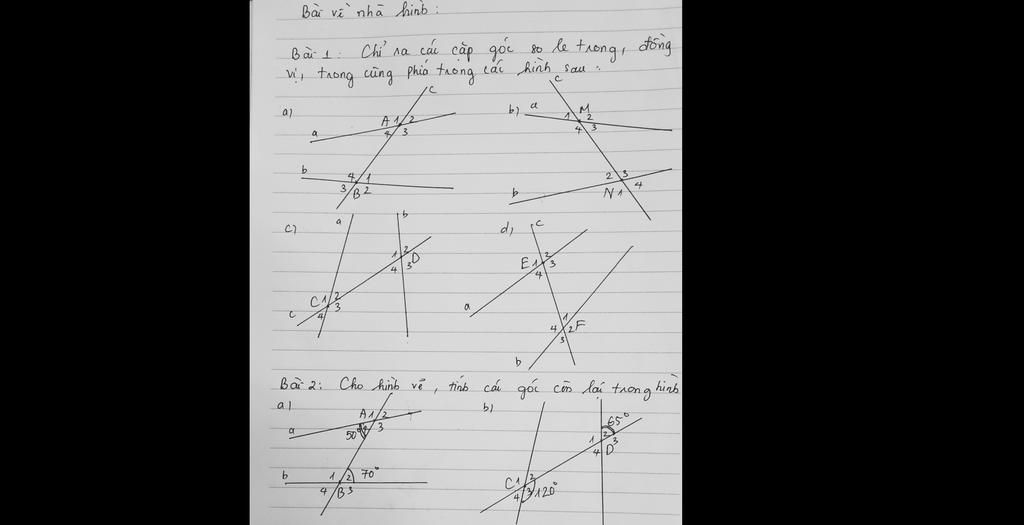 Bài về nhà hình:
Bài 1: Chỉ ra các cặp góc so le trong, đồng
vị, trong cùng phía trong các hình sau:
a) c A 1 2 3 4 a b 4 1 3 B 2
b) c a 1 M 2 4 3 2 3 4 N 1 b
c) a b 1 2 D 4 3 C 1 2 3 4 c
d) c E 1 2 3 4 a 1 4 2 F 3 b
Bài 2: Cho hình vẽ, tính các góc còn lại trong hình
a) A 1 2 3 a 50° b 1 2 70° 4 B 3
b) 65° 1 2 3 4 D C 1 2 4 3 120°